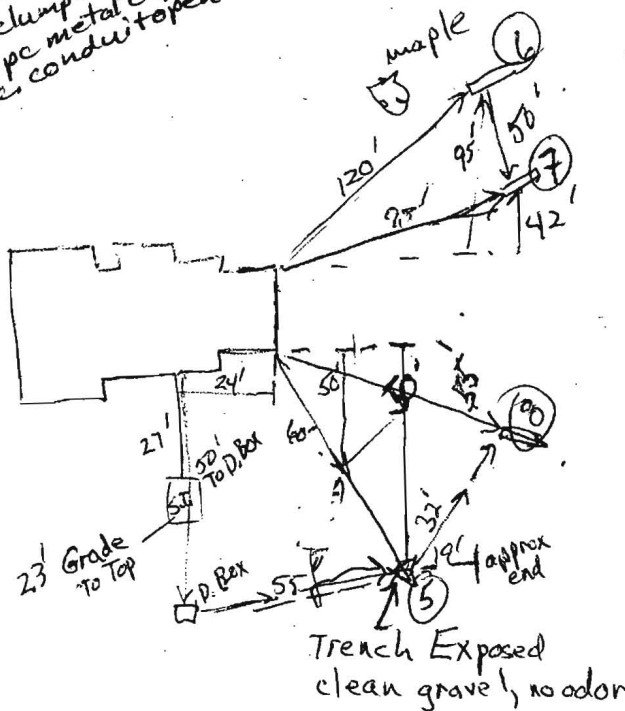 clump
pc metal
conduit open
maple
6
120'
95'
50'
7
42'
24'
50'
27'
50'
To D. Box
S.T.
60
8
32'
23' Grade
To Top
D. Box
55'
19'
approx
end
5
Trench Exposed
clean gravel, no odor